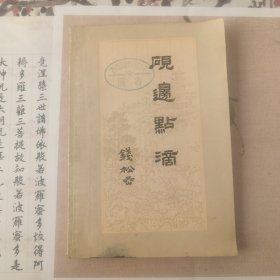 硯邊點滴
錢松嵒
竟涅槃三世諸佛依般若波羅蜜多故得阿
耨多羅三藐三菩提故知般若波羅蜜多是
大神咒是大明咒是